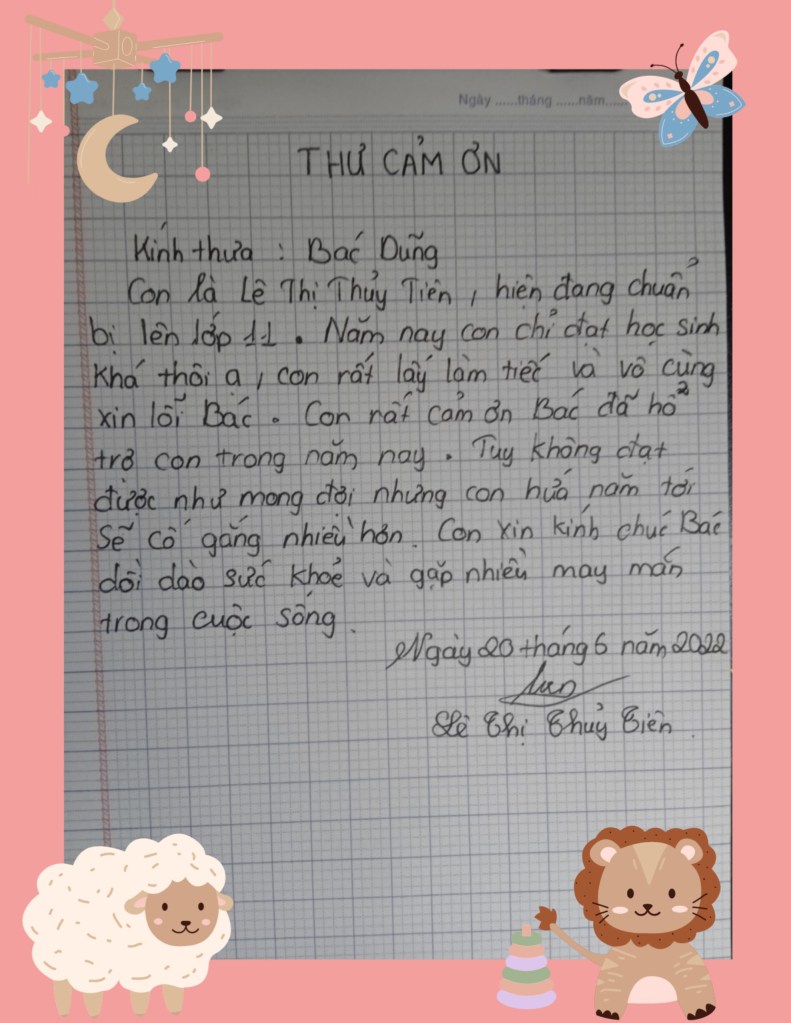 Ngày ......tháng ......năm......
THƯ CẢM ƠN
Kính thưa : Bác Dũng
Con là Lê Thị Thủy Tiên, hiện đang chuẩn
bị lên lớp 11. Năm nay con chỉ đạt học sinh
khá thôi ạ, con rất lấy làm tiếc và vô cùng
xin lỗi Bác. Con rất cảm ơn Bác đã hỗ
trợ con trong năm nay. Tuy không đạt
được như mong đợi nhưng con hứa năm tới
sẽ cố gắng nhiều hơn. Con xin kính chúc Bác
dồi dào sức khoẻ và gặp nhiều may mắn
trong cuộc sống.
Ngày 20 tháng 6 năm 2022
Lê Thị Thuỷ Tiên.